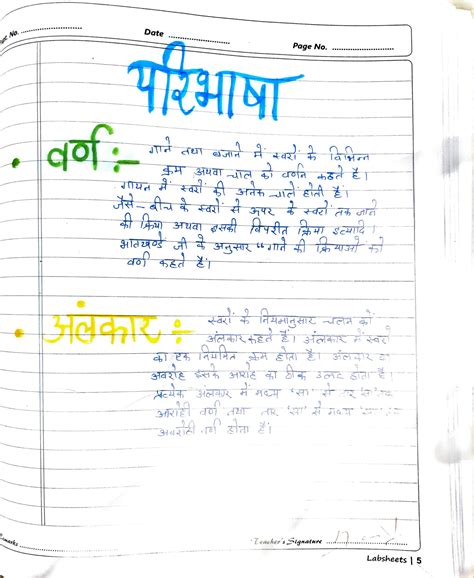 Page No. ..........
Date ..........................
Page No. ..........................
परिभाषा
• वर्ण :- गाने तथा बजाने में स्वरों के विभिन्न
क्रम अथवा चाल को वर्णन कहते है।
गायन में स्वरों की अनेक चालें होती हैं।
जैसे- बीच के स्वरों से ऊपर के स्वरों तक जाने
की क्रिया अथवा इसकी विपरीत क्रिया इत्यादि।
भातखण्डे जी के अनुसार "गाने की क्रियाओं को
वर्ण कहते हैं।
• अलंकार :- स्वरों के नियमानुसार चलन को
अलंकार कहते हैं। अलंकार में स्वरों
का एक नियमित क्रम होता है। अलंकार का
अवरोह इसके आरोह का ठीक उलट होता है।
प्रत्येक अलंकार में मध्य 'सा' से तार सा तक
आरोही वर्ण तथा तार 'सां' से मध्य 'सा'
अवरोही वर्ण होता है।
Remarks ..........
Teacher's Signature ..........
Labsheets | 5